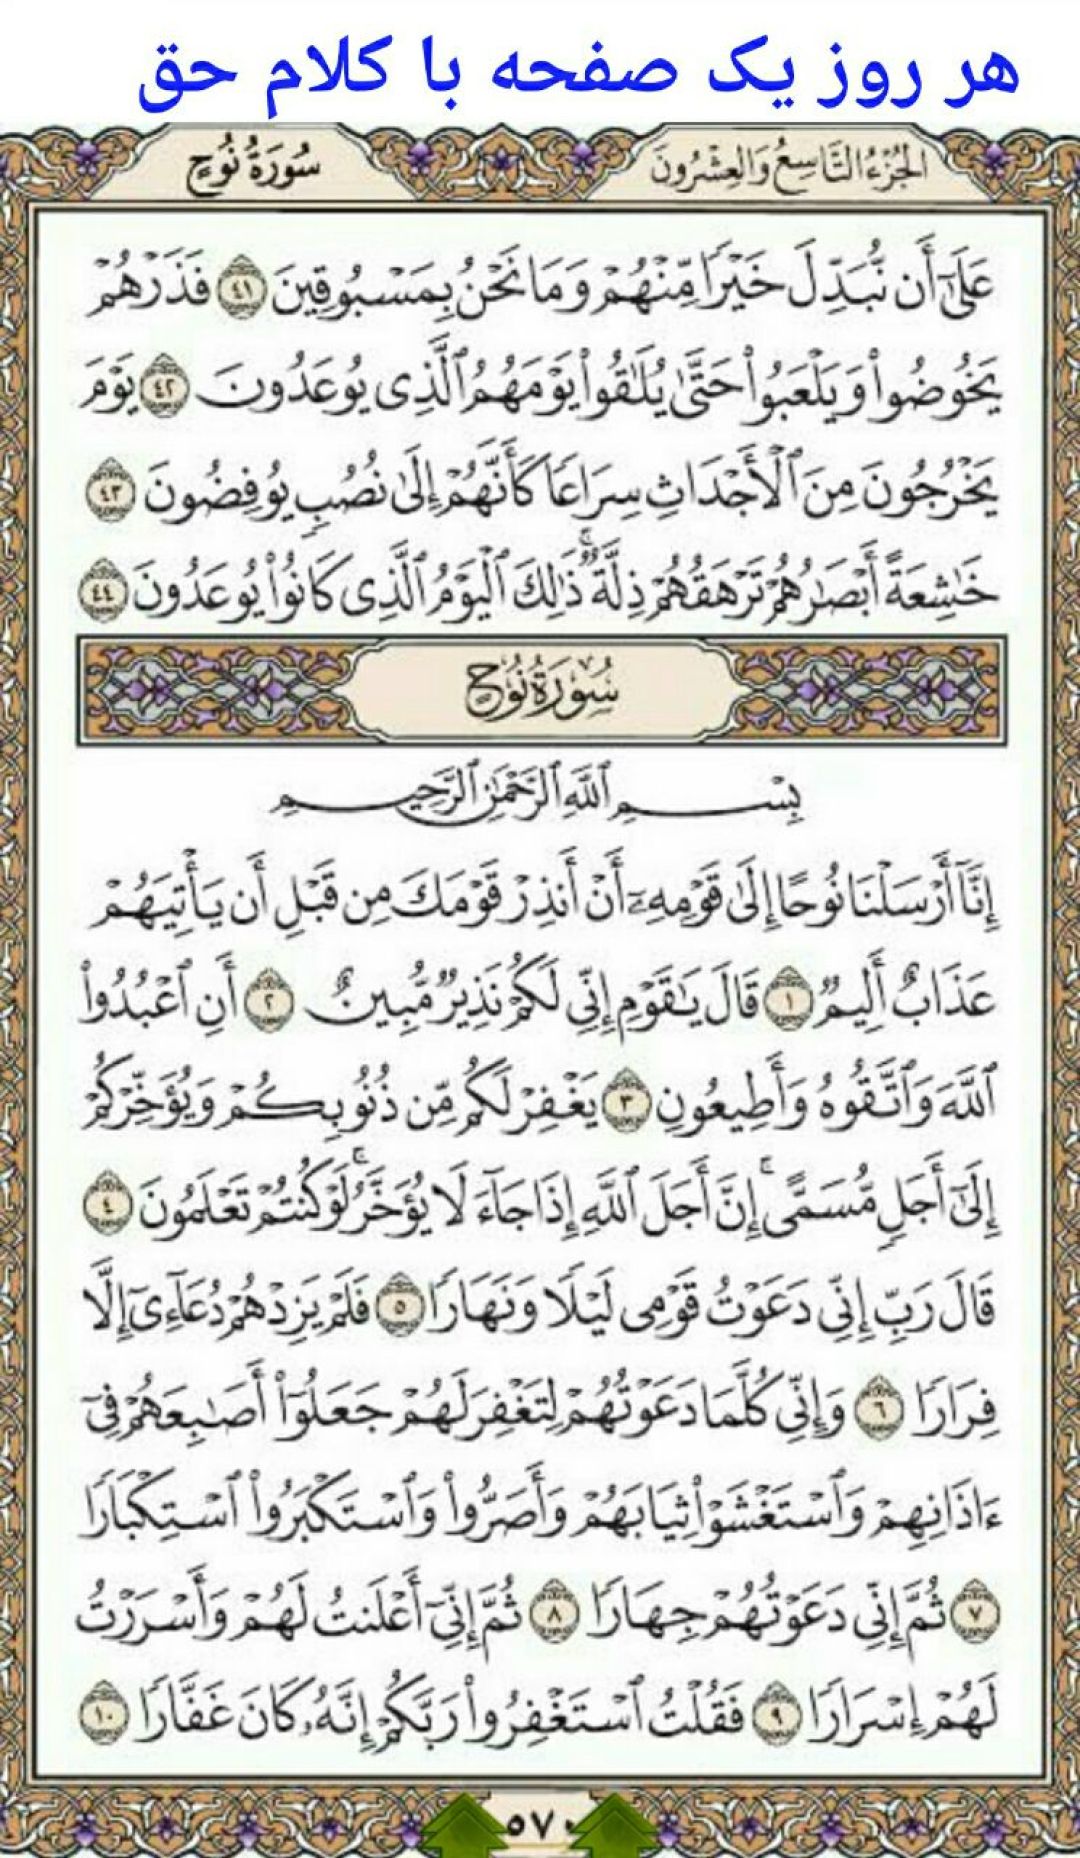 هر روز یک صفحه با کلام حق
الجُزْءُ التَّاسِعُ وَالعِشْرُونَ
سُورَةُ نُوحٍ
عَلَىٰٓ أَن نُّبَدِّلَ خَيْرٗا مِّنْهُمْ وَمَا نَحْنُ بِمَسْبُوقِينَ ٤١ فَذَرْهُمْ
يَخُوضُوا۟ وَيَلْعَبُوا۟ حَتَّىٰ يُلَٰقُوا۟ يَوْمَهُمُ ٱلَّذِى يُوعَدُونَ ٤٢ يَوْمَ
يَخْرُجُونَ مِنَ ٱلْأَجْدَاثِ سِرَاعٗا كَأَنَّهُمْ إِلَىٰ نُصُبٖ يُوفِضُونَ ٤٣
خَٰشِعَةً أَبْصَٰرُهُمْ تَرْهَقُهُمْ ذِلَّةٞۚ ذَٰلِكَ ٱلْيَوْمُ ٱلَّذِى كَانُوا۟ يُوعَدُونَ ٤٤
سُورَةُ نُوحٍ
بِسْمِ ٱللَّهِ ٱلرَّحْمَٰنِ ٱلرَّحِيمِ
إِنَّآ أَرْسَلْنَا نُوحًا إِلَىٰ قَوْمِهِۦٓ أَنْ أَنذِرْ قَوْمَكَ مِن قَبْلِ أَن يَأْتِيَهُمْ
عَذَابٌ أَلِيمٞ ١ قَالَ يَٰقَوْمِ إِنِّى لَكُمْ نَذِيرٞ مُّبِينٌ ٢ أَنِ ٱعْبُدُوا۟
ٱللَّهَ وَٱتَّقُوهُ وَأَطِيعُونِ ٣ يَغْفِرْ لَكُم مِّن ذُنُوبِكُمْ وَيُؤَخِّرْكُمْ
إِلَىٰٓ أَجَلٖ مُّسَمًّىۚ إِنَّ أَجَلَ ٱللَّهِ إِذَا جَآءَ لَا يُؤَخَّرُۚ لَوْ كُنتُمْ تَعْلَمُونَ ٤
قَالَ رَبِّ إِنِّى دَعَوْتُ قَوْمِى لَيْلٗا وَنَهَارٗا ٥ فَلَمْ يَزِدْهُمْ دُعَآءِىٓ إِلَّا
فِرَارٗا ٦ وَإِنِّى كُلَّمَا دَعَوْتُهُمْ لِتَغْفِرَ لَهُمْ جَعَلُوٓا۟ أَصَٰبِعَهُمْ فِىٓ
ءَاذَانِهِمْ وَٱسْتَغْشَوْا۟ ثِيَابَهُمْ وَأَصَرُّوا۟ وَٱسْتَكْبَرُوا۟ ٱسْتِكْبَارٗا
٧ ثُمَّ إِنِّى دَعَوْتُهُمْ جِهَارٗا ٨ ثُمَّ إِنِّىٓ أَعْلَنتُ لَهُمْ وَأَسْرَرْتُ
لَهُمْ إِسْرَارٗا ٩ فَقُلْتُ ٱسْتَغْفِرُوا۟ رَبَّكُمْ إِنَّهُۥ كَانَ غَفَّارٗا ١٠
٥٧٠